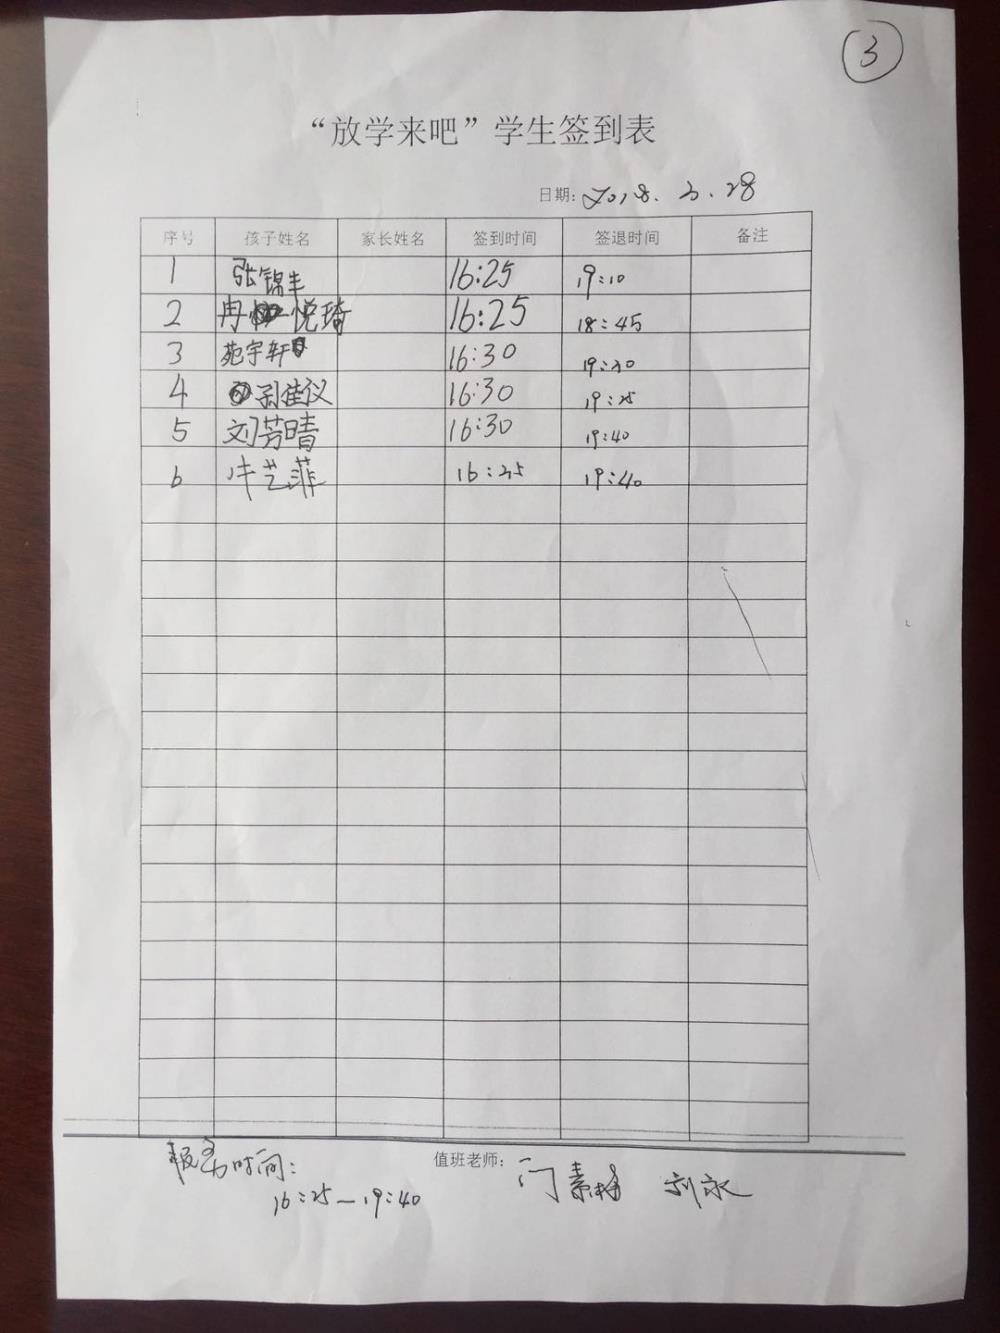 3
“放学来吧”学生签到表
日期: 2018.3.28
序号 孩子姓名 家长姓名 签到时间 签退时间 备注
1 张锦丰 16:25 19:10
2 冉悦琦 16:25 18:45
3 苑宇轩 16:30
4 孙佳仪 16:30 19:25
5 刘芳晴 16:30 19:40
6 牛艺菲 16:35 19:40
值班老师: 门素梅 刘永
时间:
16:25—19:40